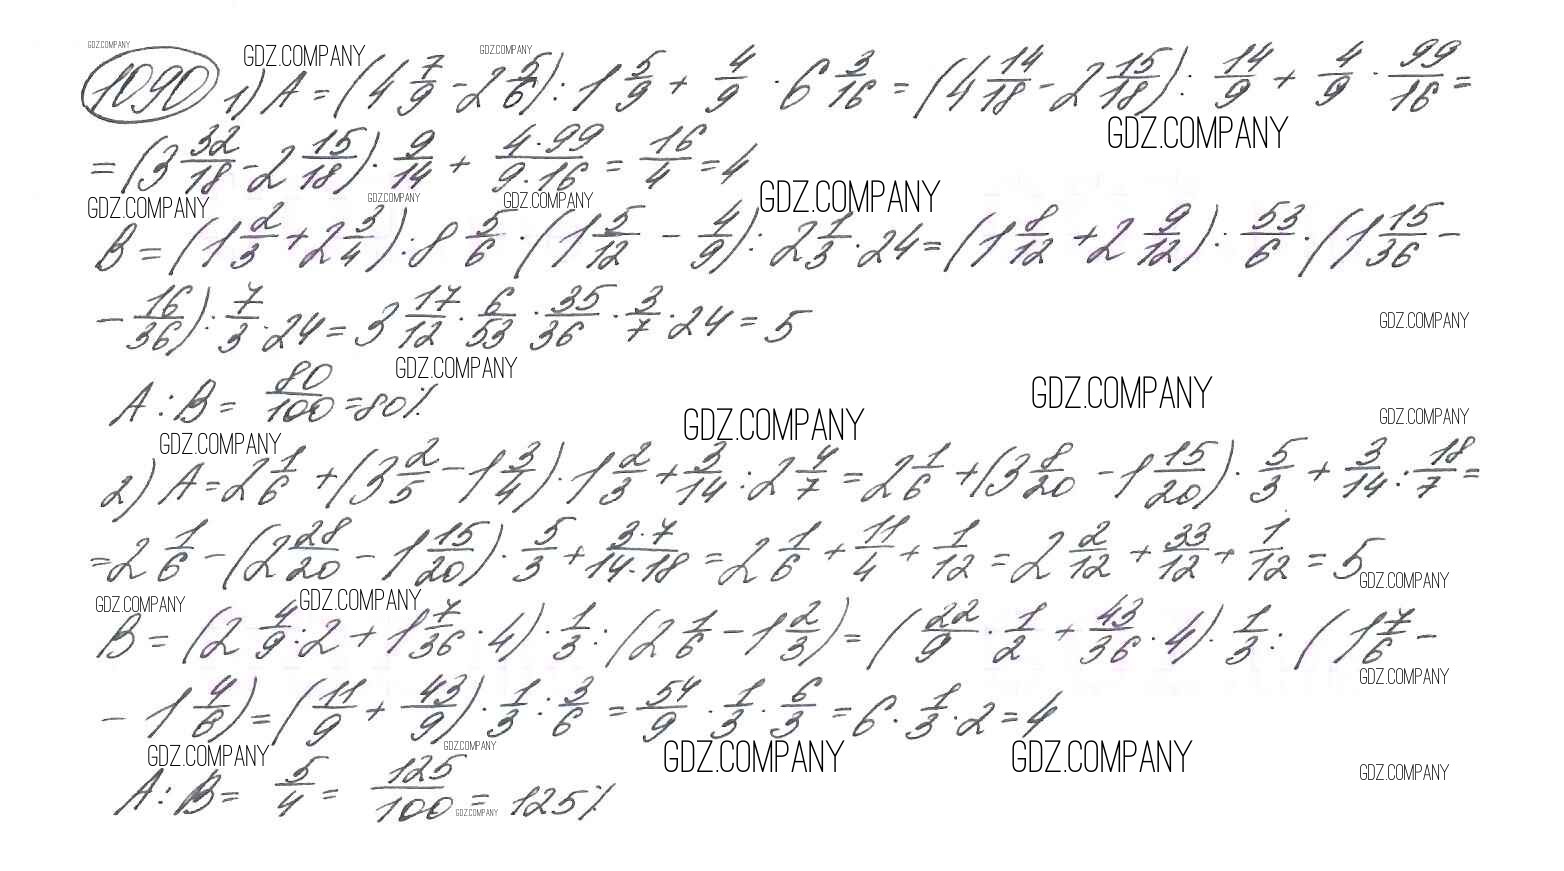 GDZ.COMPANY
GDZ.COMPANY GDZ.COMPANY
1090 1) A = (4 7/9 - 2 5/6) : 1 5/9 + 4/9 · 6 3/16 = (4 14/18 - 2 15/18) : 14/9 + 4/9 · 99/16 =
GDZ.COMPANY
= (3 32/18 - 2 15/18) · 9/14 + 4·99/9·16 = 16/4 = 4
GDZ.COMPANY GDZ.COMPANY GDZ.COMPANY GDZ.COMPANY
B = (1 2/3 + 2 3/4) : 8 5/6 · (1 5/12 - 4/9) : 2 1/3 · 24 = (1 8/12 + 2 9/12) : 53/6 · (1 15/36 -
- 16/36) : 7/3 · 24 = 3 17/12 · 6/53 · 35/36 · 3/7 · 24 = 5
GDZ.COMPANY
GDZ.COMPANY
A : B = 80/100 = 80%
GDZ.COMPANY
GDZ.COMPANY GDZ.COMPANY
GDZ.COMPANY
2) A = 2 1/6 + (3 2/5 - 1 3/4) · 1 2/3 + 3/14 : 2 4/7 = 2 1/6 + (3 8/20 - 1 15/20) · 5/3 + 3/14 : 18/7 =
= 2 1/6 - (2 28/20 - 1 15/20) · 5/3 + 3·7/14·18 = 2 1/6 + 11/4 + 1/12 = 2 2/12 + 33/12 + 1/12 = 5
GDZ.COMPANY
GDZ.COMPANY GDZ.COMPANY
B = (2 4/9 : 2 + 1 7/36 · 4) · 1/3 : (2 1/6 - 1 2/3) = (22/9 · 1/2 + 43/36 · 4) · 1/3 : (1 7/6 -
GDZ.COMPANY
- 1 4/6) = (11/9 + 43/9) · 1/3 : 3/6 = 54/9 · 1/3 · 6/3 = 6 · 1/3 · 2 = 4
GDZ.COMPANY GDZ.COMPANY GDZ.COMPANY GDZ.COMPANY
GDZ.COMPANY
A : B = 5/4 = 125/100 = 125%
GDZ.COMPANY